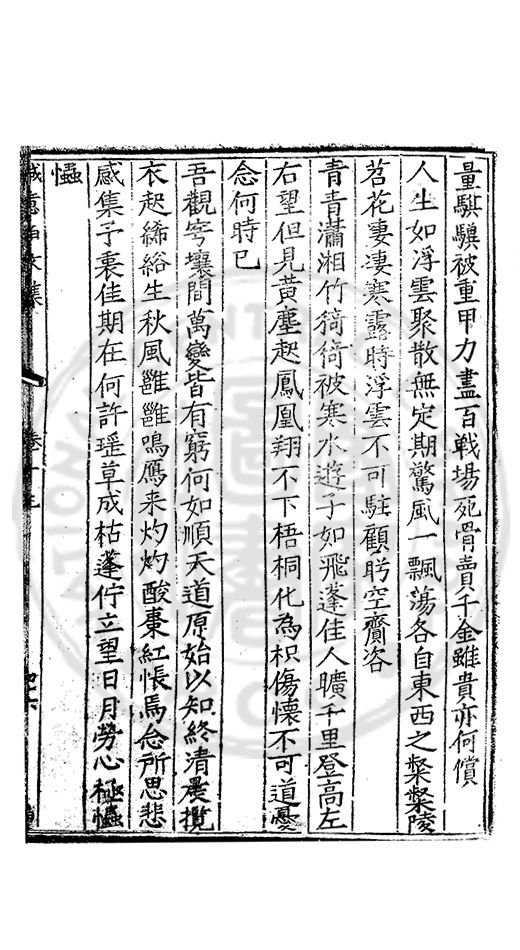 量騏驥被重甲力盡百戰場死骨賣千金雖貴亦何償
人生如浮雲聚散無定期驚風一飄蕩各自東西之粲粲陵
苕花凄凄寒露時浮雲不可駐顧眄空賷咨
青青瀟湘竹猗猗被寒水遊子如飛蓬佳人曠千里登高左
右望但見黃塵起鳳凰翔不下梧桐化為枳傷懷不可道憂
念何時已
吾觀穹壤間萬變皆有窮何如順天道原始以知終清晨攬
衣起絺綌生秋風雝雝鳴鴈来灼灼酸棗紅悵焉念所思悲
感集予衷佳期在何許瑶草成枯蓬佇立望日月勞心極忡
忡
誠意伯文集
卷十